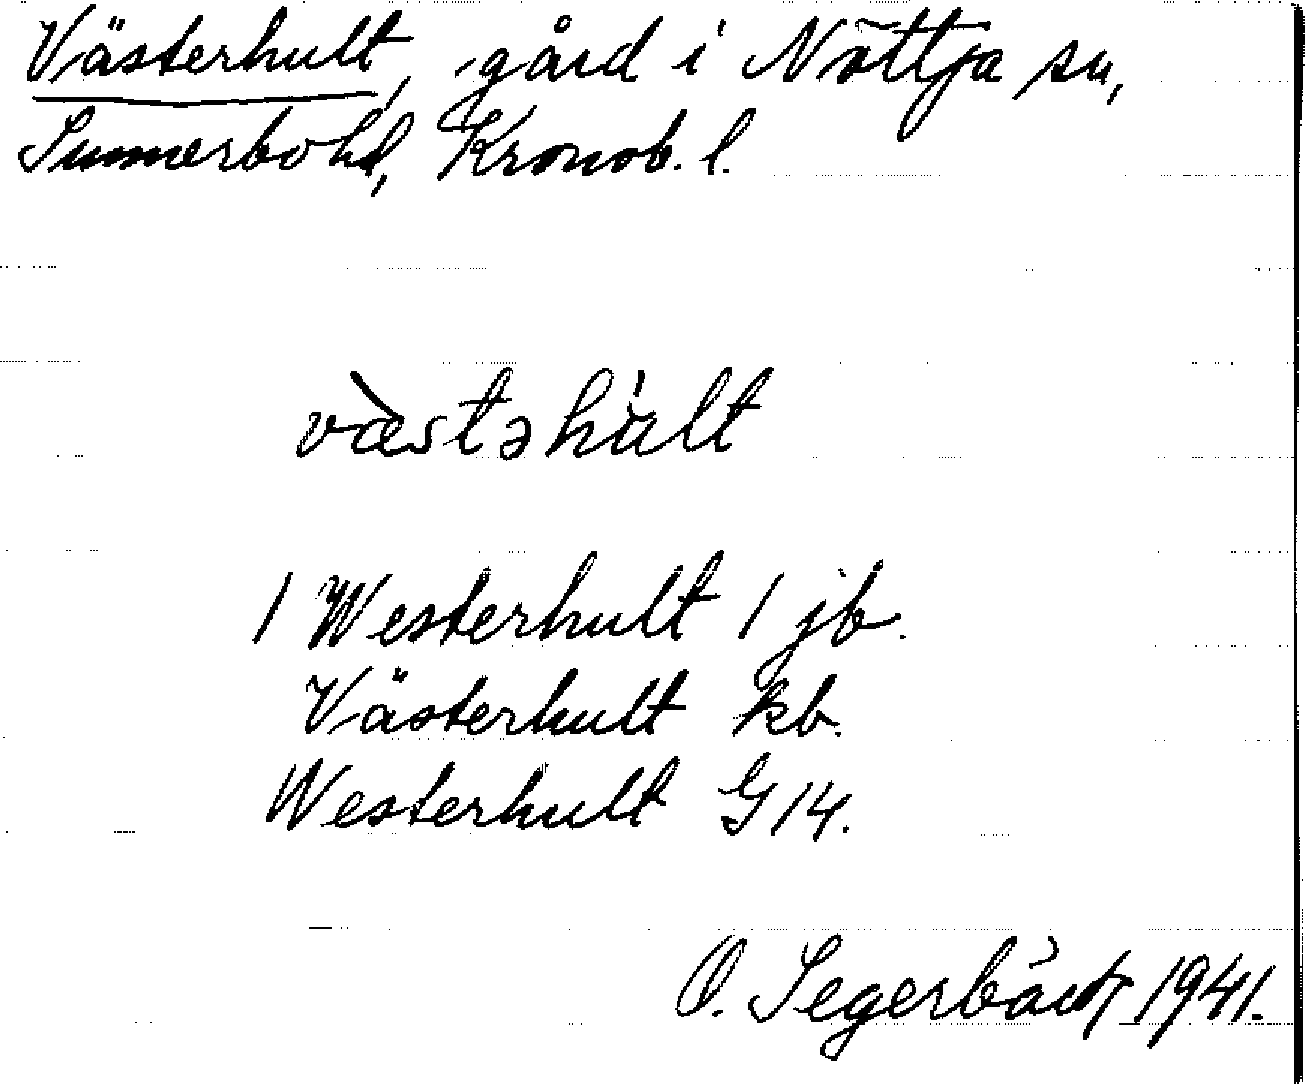 Västerhult, gård i Nöttja sn,
Sunnerbo hd, Kronob. l.
væ̀stəhu̇lt
1 Westerhult 1 jb.
Västerhult kb.
Westerhult G14.
O. 1941.